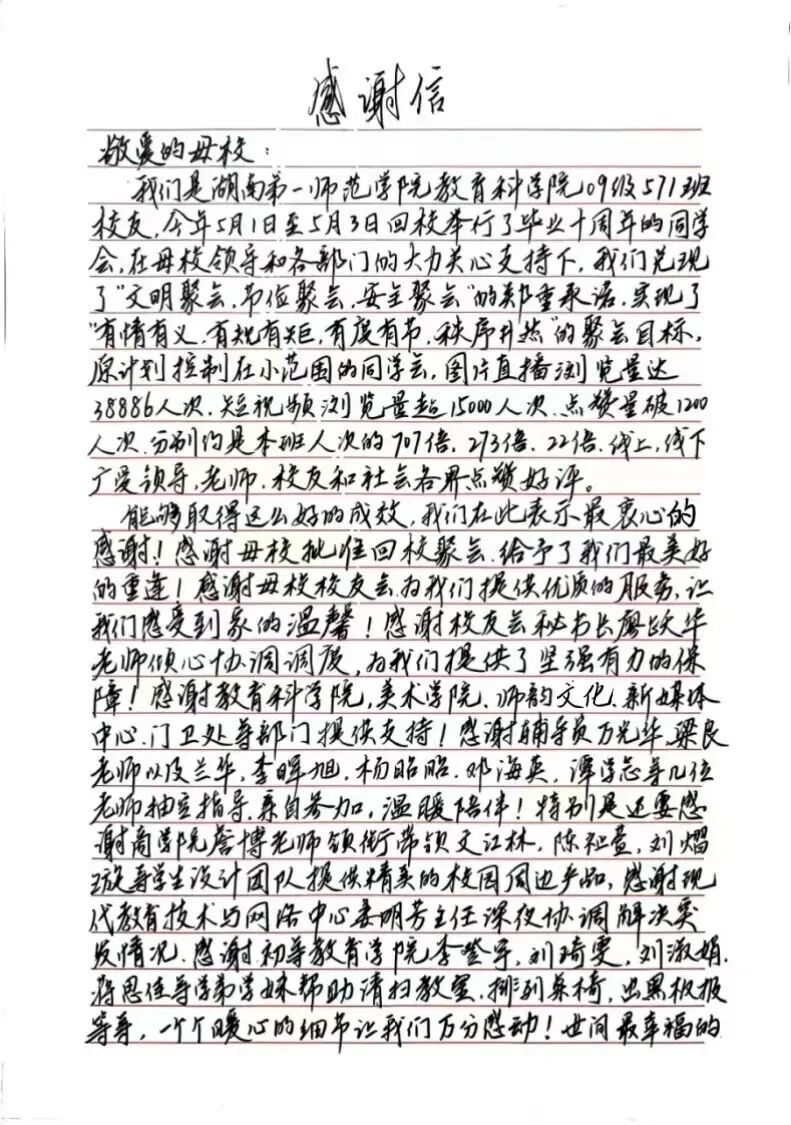 感谢信
敬爱的母校：
我们是湖南第一师范学院教育科学院09级571班
校友，今年5月1日至5月3日回校举行了毕业十周年的同学
会，在母校领导和各部门的大力关心支持下，我们兑现
了“文明聚会、节俭聚会、安全聚会”的郑重承诺，实现了
“有情有义、有规有矩、有度有节、秩序井然”的聚会目标，
原计划控制在小范围的同学会，图片直播浏览量达
38886人次、短视频浏览量超15000人次、点赞量破1200
人次，分别约是本班人次的707倍、273倍、22倍，线上、线下
广受领导、老师、校友和社会各界点赞好评。
能够取得这么好的成效，我们在此表示最衷心的
感谢！感谢母校批准回校聚会，给予了我们最美好
的重逢！感谢母校校友会为我们提供优质的服务，让
我们感受到家的温馨！感谢校友会秘书长廖跃华
老师倾心协调调度，为我们提供了坚强有力的保
障！感谢教育科学院、美术学院、师韵文化、新媒体
中心、门卫处等部门提供支持！感谢辅导员万光华、梁良
老师以及兰华、李晖旭、杨昭昭、邓海英、谭学志等几位
老师抽空指导、亲自参加，温暖陪伴！特别是还要感
谢商学院詹博老师领衔带领文江林、陈祉萱、刘熠
璇等学生设计团队提供精美的校园周边产品，感谢现
代教育技术与网络中心姜明芳主任深夜协调解决突
发情况，感谢初等教育学院李、刘琦雯、刘淑娟、
蒋思佳等学弟学妹帮助清扫教室、排列桌椅，出黑板报
等等，一个个暖心的细节让我们万分感动！世间最幸福的